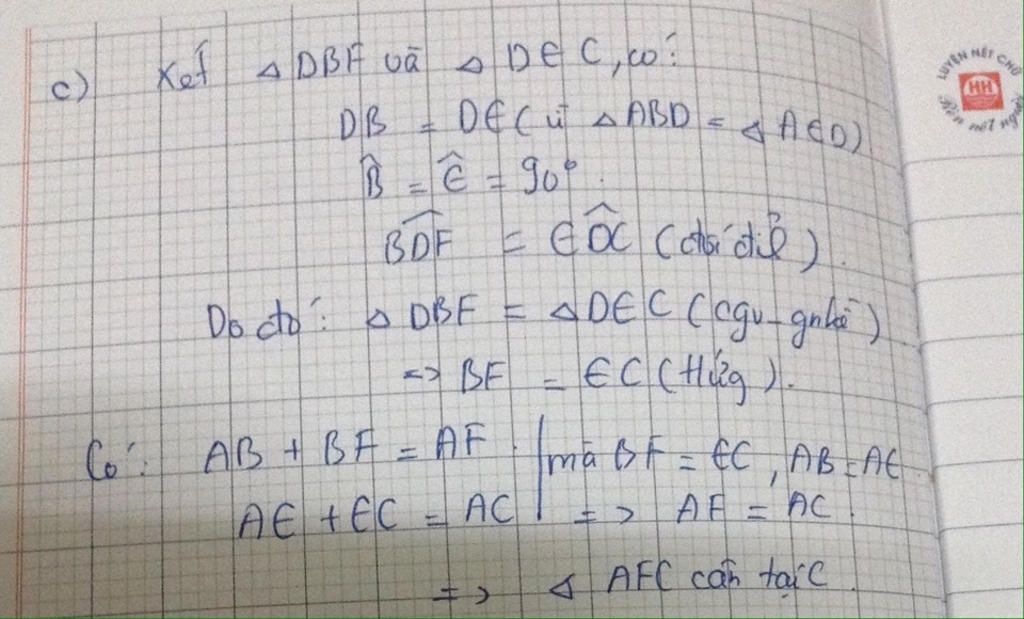 c) Xét △DBF và △DEC, có:
DB = DE (vì △ABD = △AED)
B̂ = Ê = 90°.
BD̂F = ED̂C (đối đỉ).
Do đó: △DBF = △DEC (cgv-gnkề)
=> BF = EC (tứng).
Có: AB + BF = AF. | mà BF = EC, AB = AE.
AE + EC = AC | => AF = AC.
=> △ AFC cân tại C.
LUYỆN NÉT CHỮ
HH
Rèn nết người